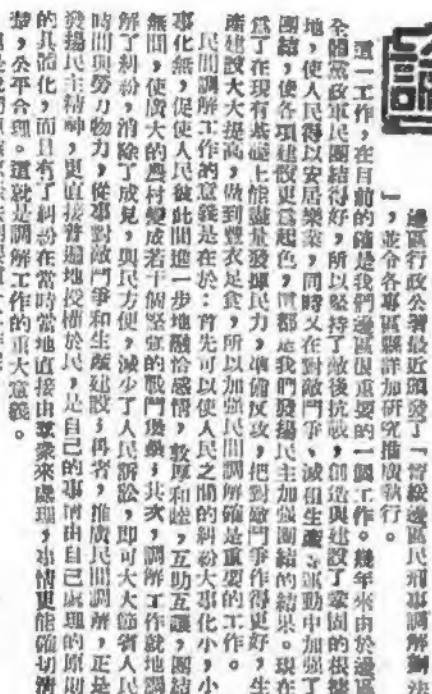 邊區行政公署最近頒發了「晉綏邊區民刑事調解辦法
」，並令各專區縣詳加研究推廣執行。
這一工作，在目前的確是我們邊區很重要的一個工作。幾年來由於邊區
全體黨政軍民團結得好，所以堅持了敵後抗戰，創造與建設了鞏固的根據
地，使人民得以安居樂業，同時又在對敵鬥爭、減租生產等運動中加強了
團結，使各項建設更爲起色，這都是我們發揚民主加強團結的結果。現在
爲了在現有基礎上能盡量發揮民力，準備反攻，把對敵鬥爭作得更好，生
產建設大大提高，做到豐衣足食，所以加強民間調解確是重要的工作。
民間調解工作的意義是在於：首先可以使人民之間的糾紛大事化小，小
事化無，促使人民彼此間進一步地融洽感情，敦厚和睦，互助互讓，團結
無間，使廣大的農村變成若干個堅強的戰鬥堡壘；其次，調解工作就地調
解了糾紛，消除了成見，與民方便，減少了人民訴訟，即可大大節省人民
時間與勞力物力，從事對敵鬥爭和生產建設；再者，推廣民間調解，正是
發揚民主精神，更直接普遍地授權於民，是自己的事情由自己處理的原則
的具體化，而且有了糾紛在當時當地直接由羣衆來處理，事情更能確切清
楚，公平合理。這就是調解工作的重大意義。